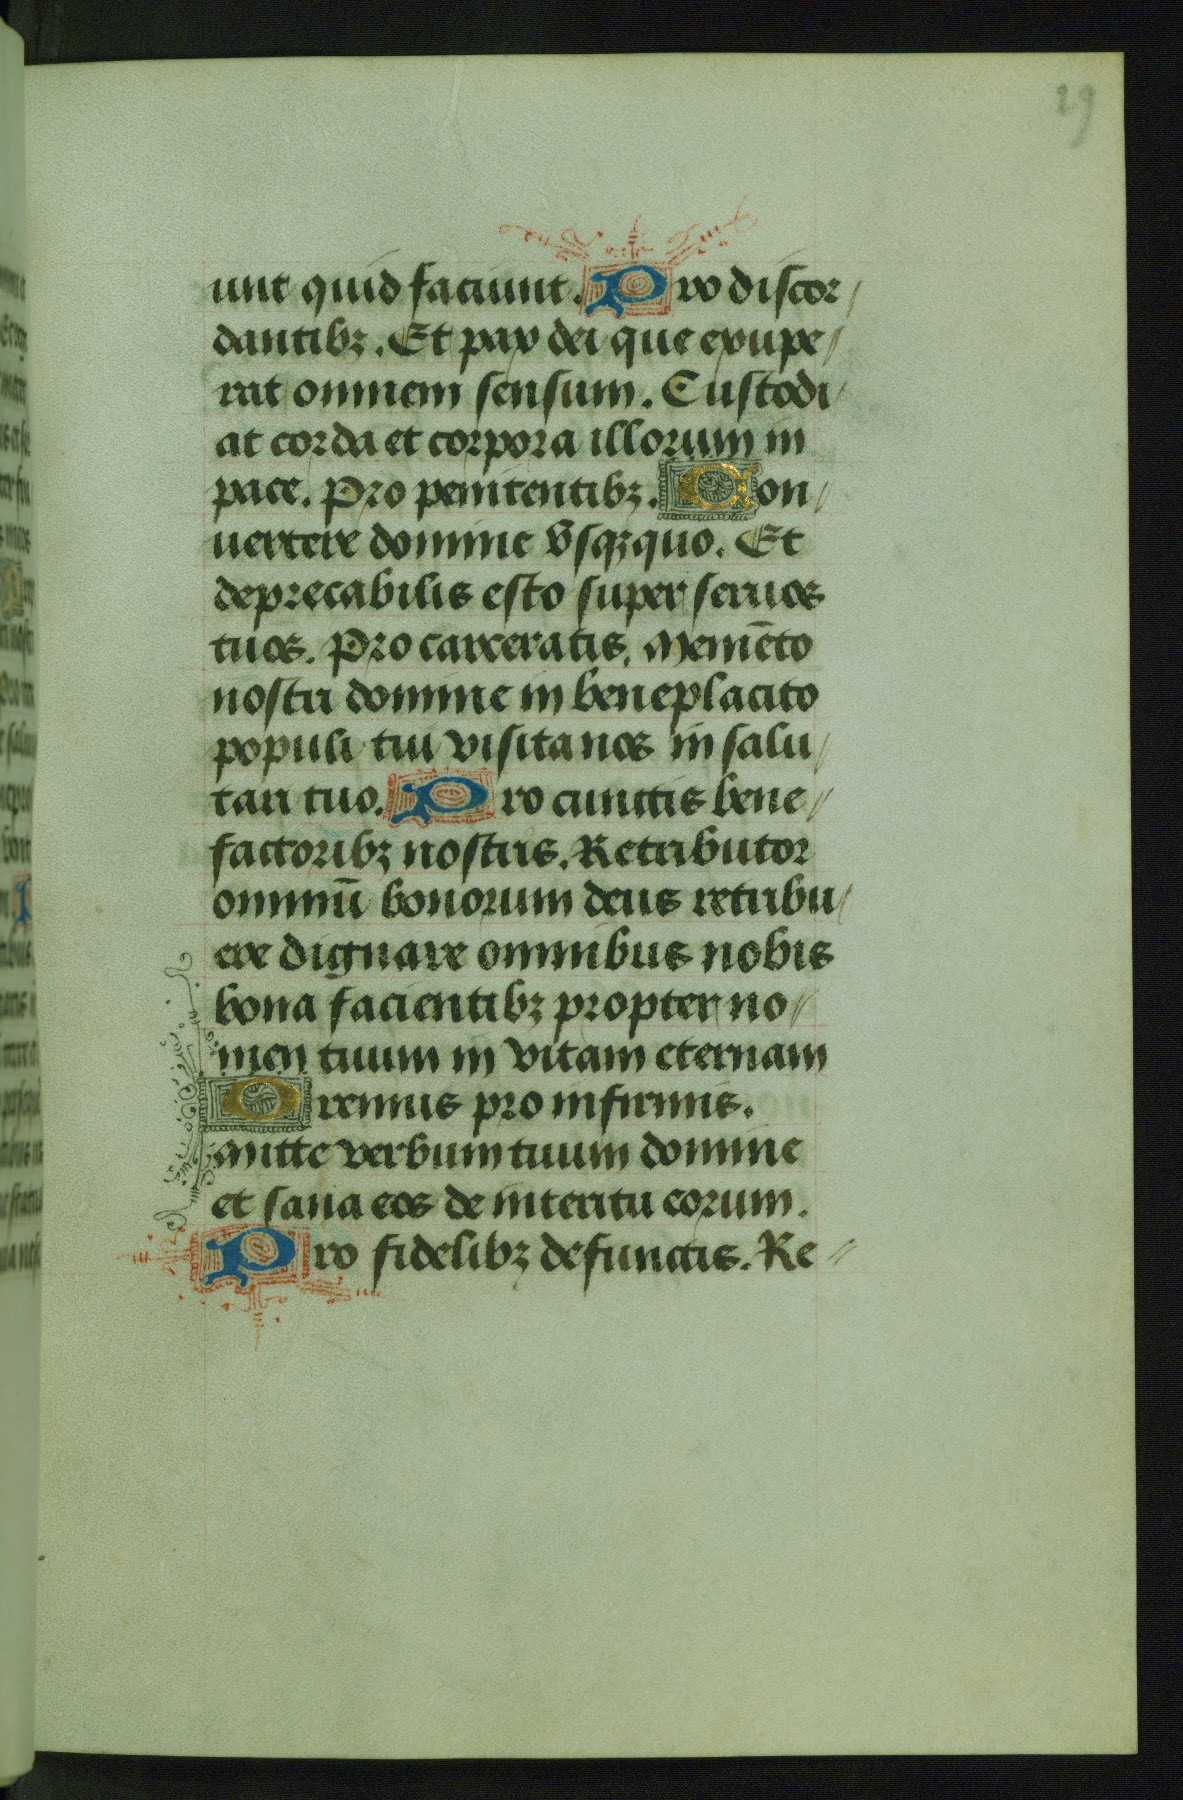 29
unt quid faciunt. Pro discor/
dantibꝫ. Et pax dei que exupe/
rat omnem sensum. Custodi/
at corda et corpora illorum in
pace. Pro penitentibꝫ. Con/
uertere domine vsqꝫquo. Et
deprecabilis esto super seruos
tuos. Pro carceratis. Memēto
nostri domine in beneplacito
populi tui visita nos in salu/
tari tuo. Pro cunctis bene//
factoribꝫ nostris. Retributor
omniū bonorum deus retribu/
ere dignare omnibus nobis
bona facientibꝫ propter no//
men tuum in vitam eternam
Oremus pro infirmis.
Mitte verbum tuum domine
et sana eos de interitu eorum.
Pro fidelibꝫ defunctis. Re//